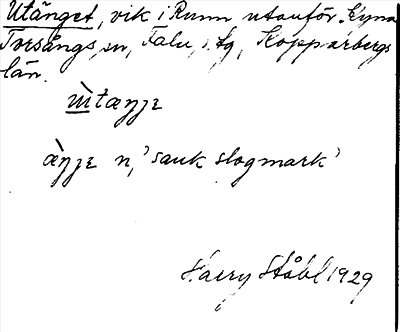 Utänget, vik i Runn utanför Kyna
Torsångs sn, Falu s. tg, Kopparbergs
län.
ùtæŋŋe
æ̀ŋŋe n, 'sank slogmark'
Harry Ståhl 1929